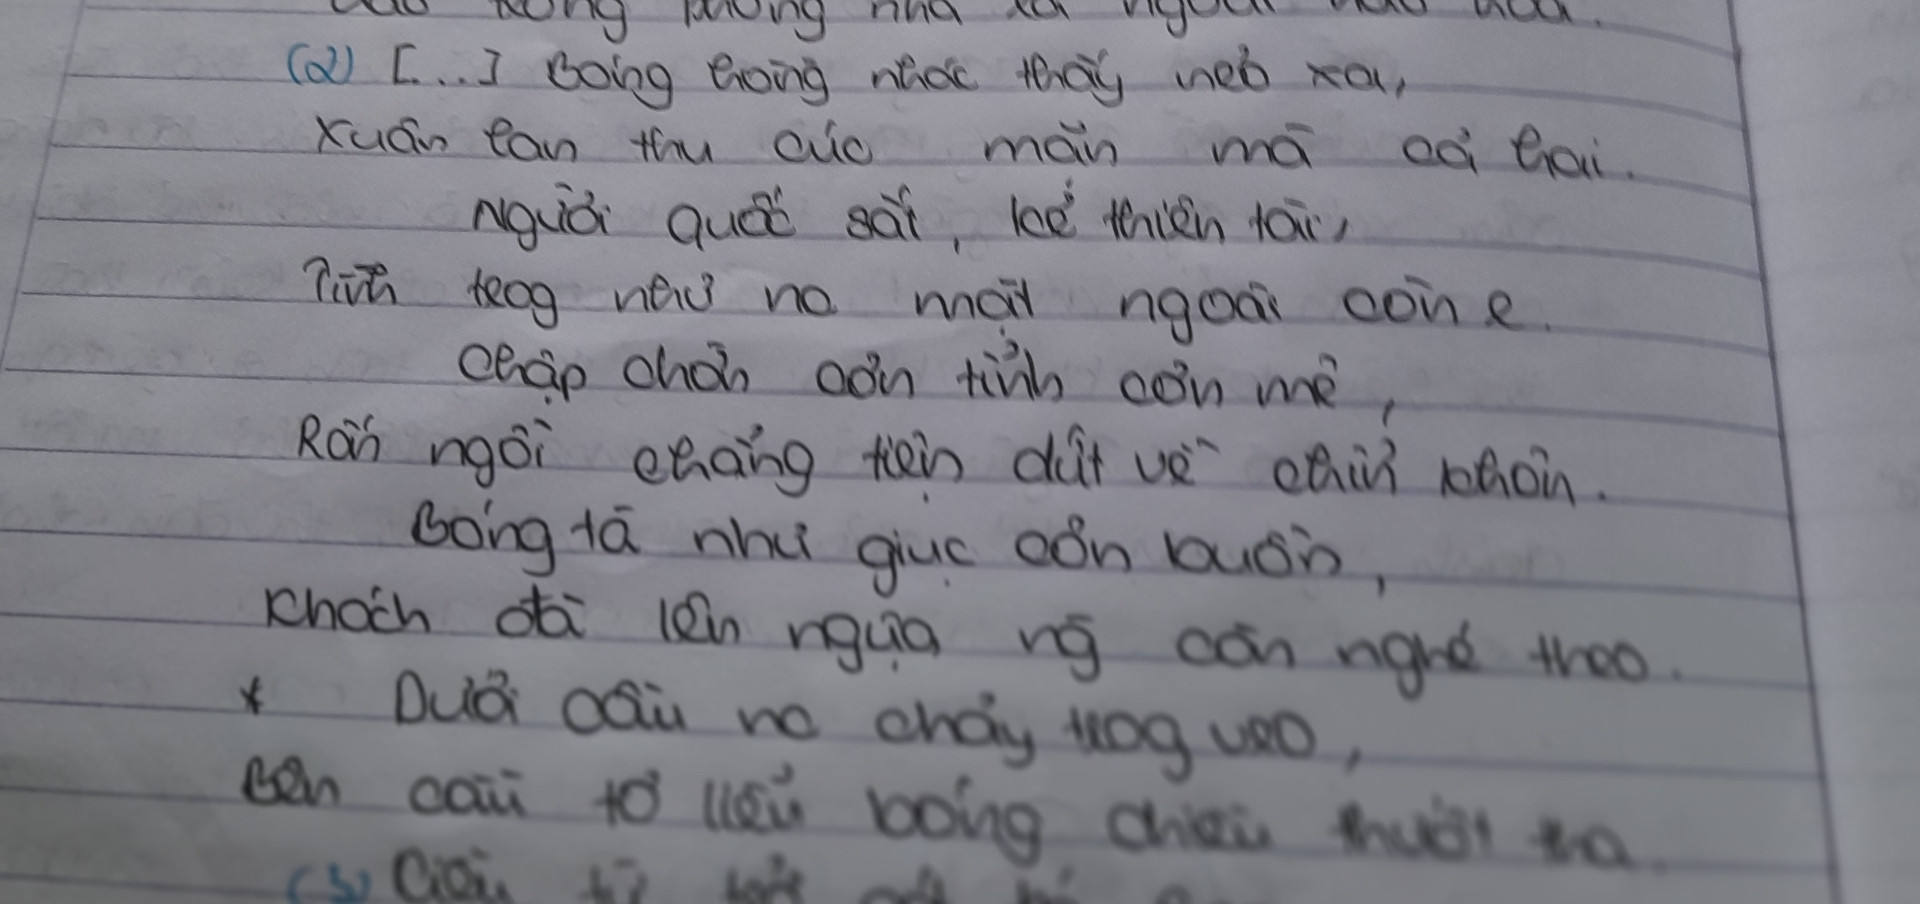 (2) [...] Bóng hồng nhác thấy nẻo xa,
Xuân lan thu cúc mặn mà cả hai.
Người quốc sắc, kẻ thiên tài,
Tình trog như no mặt ngoài còn e.
Chập chờn cơn tỉnh cơn mê,
Rốn ngồi chẳng tiện dứt về chỉn khôn.
Bóng tà như giục cơn buồn,
Khách đà lên ngựa ng còn nghé theo.
* Dưới cầu nc chảy trog veo,
Bên cầu tơ liễu bóng chiều thướt tha.
(3)